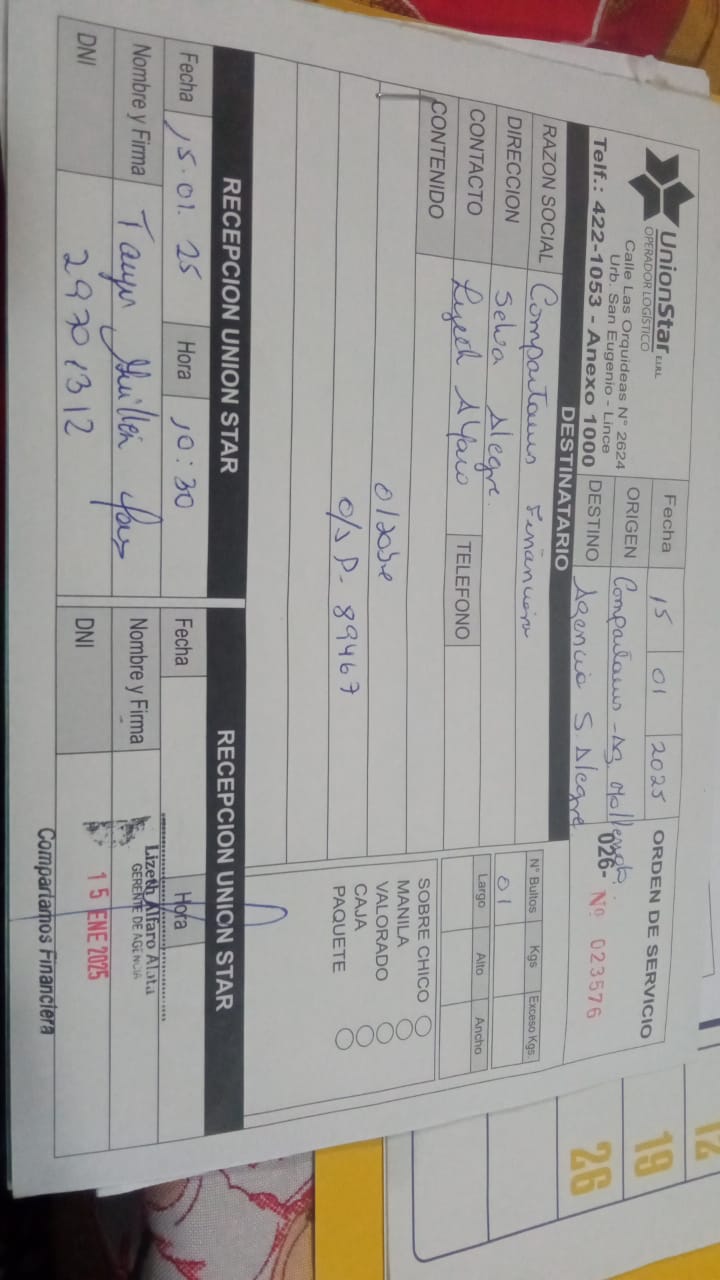 UnionStar E.I.R.L.
OPERADOR LOGÍSTICO
Calle Las Orquideas N° 2624
Urb. San Eugenio - Lince
Telf.: 422-1053 - Anexo 1000
Fecha 15 01 2025
ORIGEN Compartamos - Ag. Mollendo
DESTINO Agencia S. Alegre
ORDEN DE SERVICIO
026- Nº 023576
DESTINATARIO
RAZON SOCIAL Compartamos Financiera
DIRECCION Selva Alegre.
CONTACTO Lizeth Alfaro TELEFONO
CONTENIDO
01 sobre
O/S P- 89467
N° Bultos Kgs Exceso Kgs.
01
Largo Alto Ancho
SOBRE CHICO
MANILA
VALORADO
CAJA
PAQUETE
RECEPCION UNION STAR
Fecha 15.01.25 Hora 10:30
Nombre y Firma Guillén
DNI 29701312
RECEPCION UNION STAR
Fecha Hora
Nombre y Firma
DNI
Lizeth Alfaro
GERENTE DE AGENCIA
15 ENE 2025
Compartamos Financiera
12
19
26